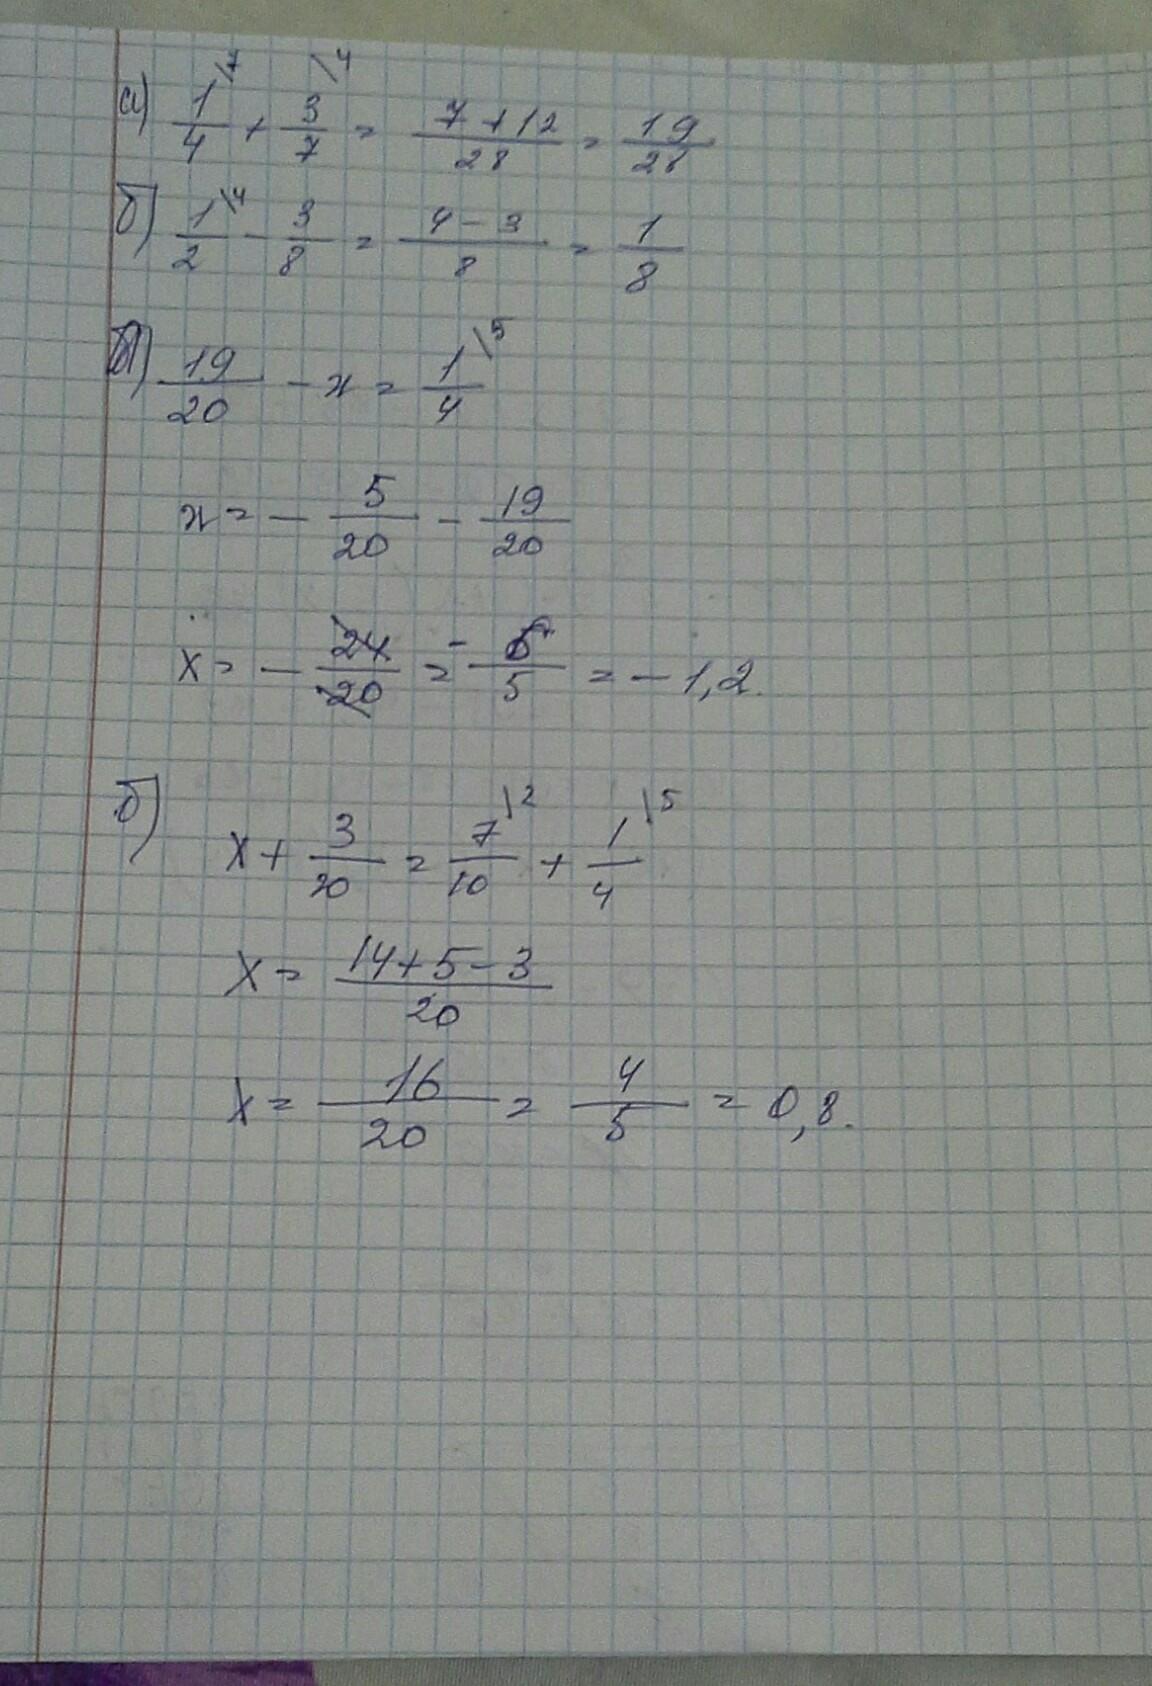 а) 1/4 \7 + 3/7 \4 = (7 + 12)/28 = 19/28
б) 1/2 \4 - 3/8 = (4 - 3)/8 = 1/8
19/20 - x = 1/4 \5
x = - 5/20 - 19/20
x = - 24/20 = - 6/5 = - 1,2.
б) x + 3/20 = 7/10 \2 + 1/4 \5
x = (14 + 5 - 3)/20
x = 16/20 = 4/5 = 0,8.